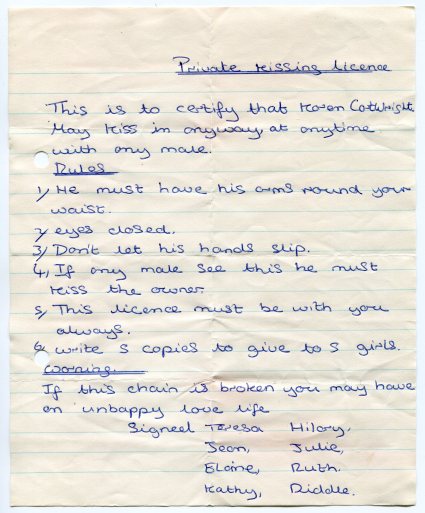 Private Kissing Licence
This is to certify that Karen Cartwright
May Kiss in anyway, at anytime
with any male.
Rules
1, He must have his arms round your
waist.
2, eyes closed.
3, Don't let his hands slip.
4, If any male see this he must
Kiss the owner
5, This licence must be with you
always.
6, write 5 copies to give to 5 girls.
Warning.
If this chain is broken you may have
an unhappy love life
Signed Teresa Hilary,
Jean, Julie,
Elaine, Ruth.
Kathy, Riddle.